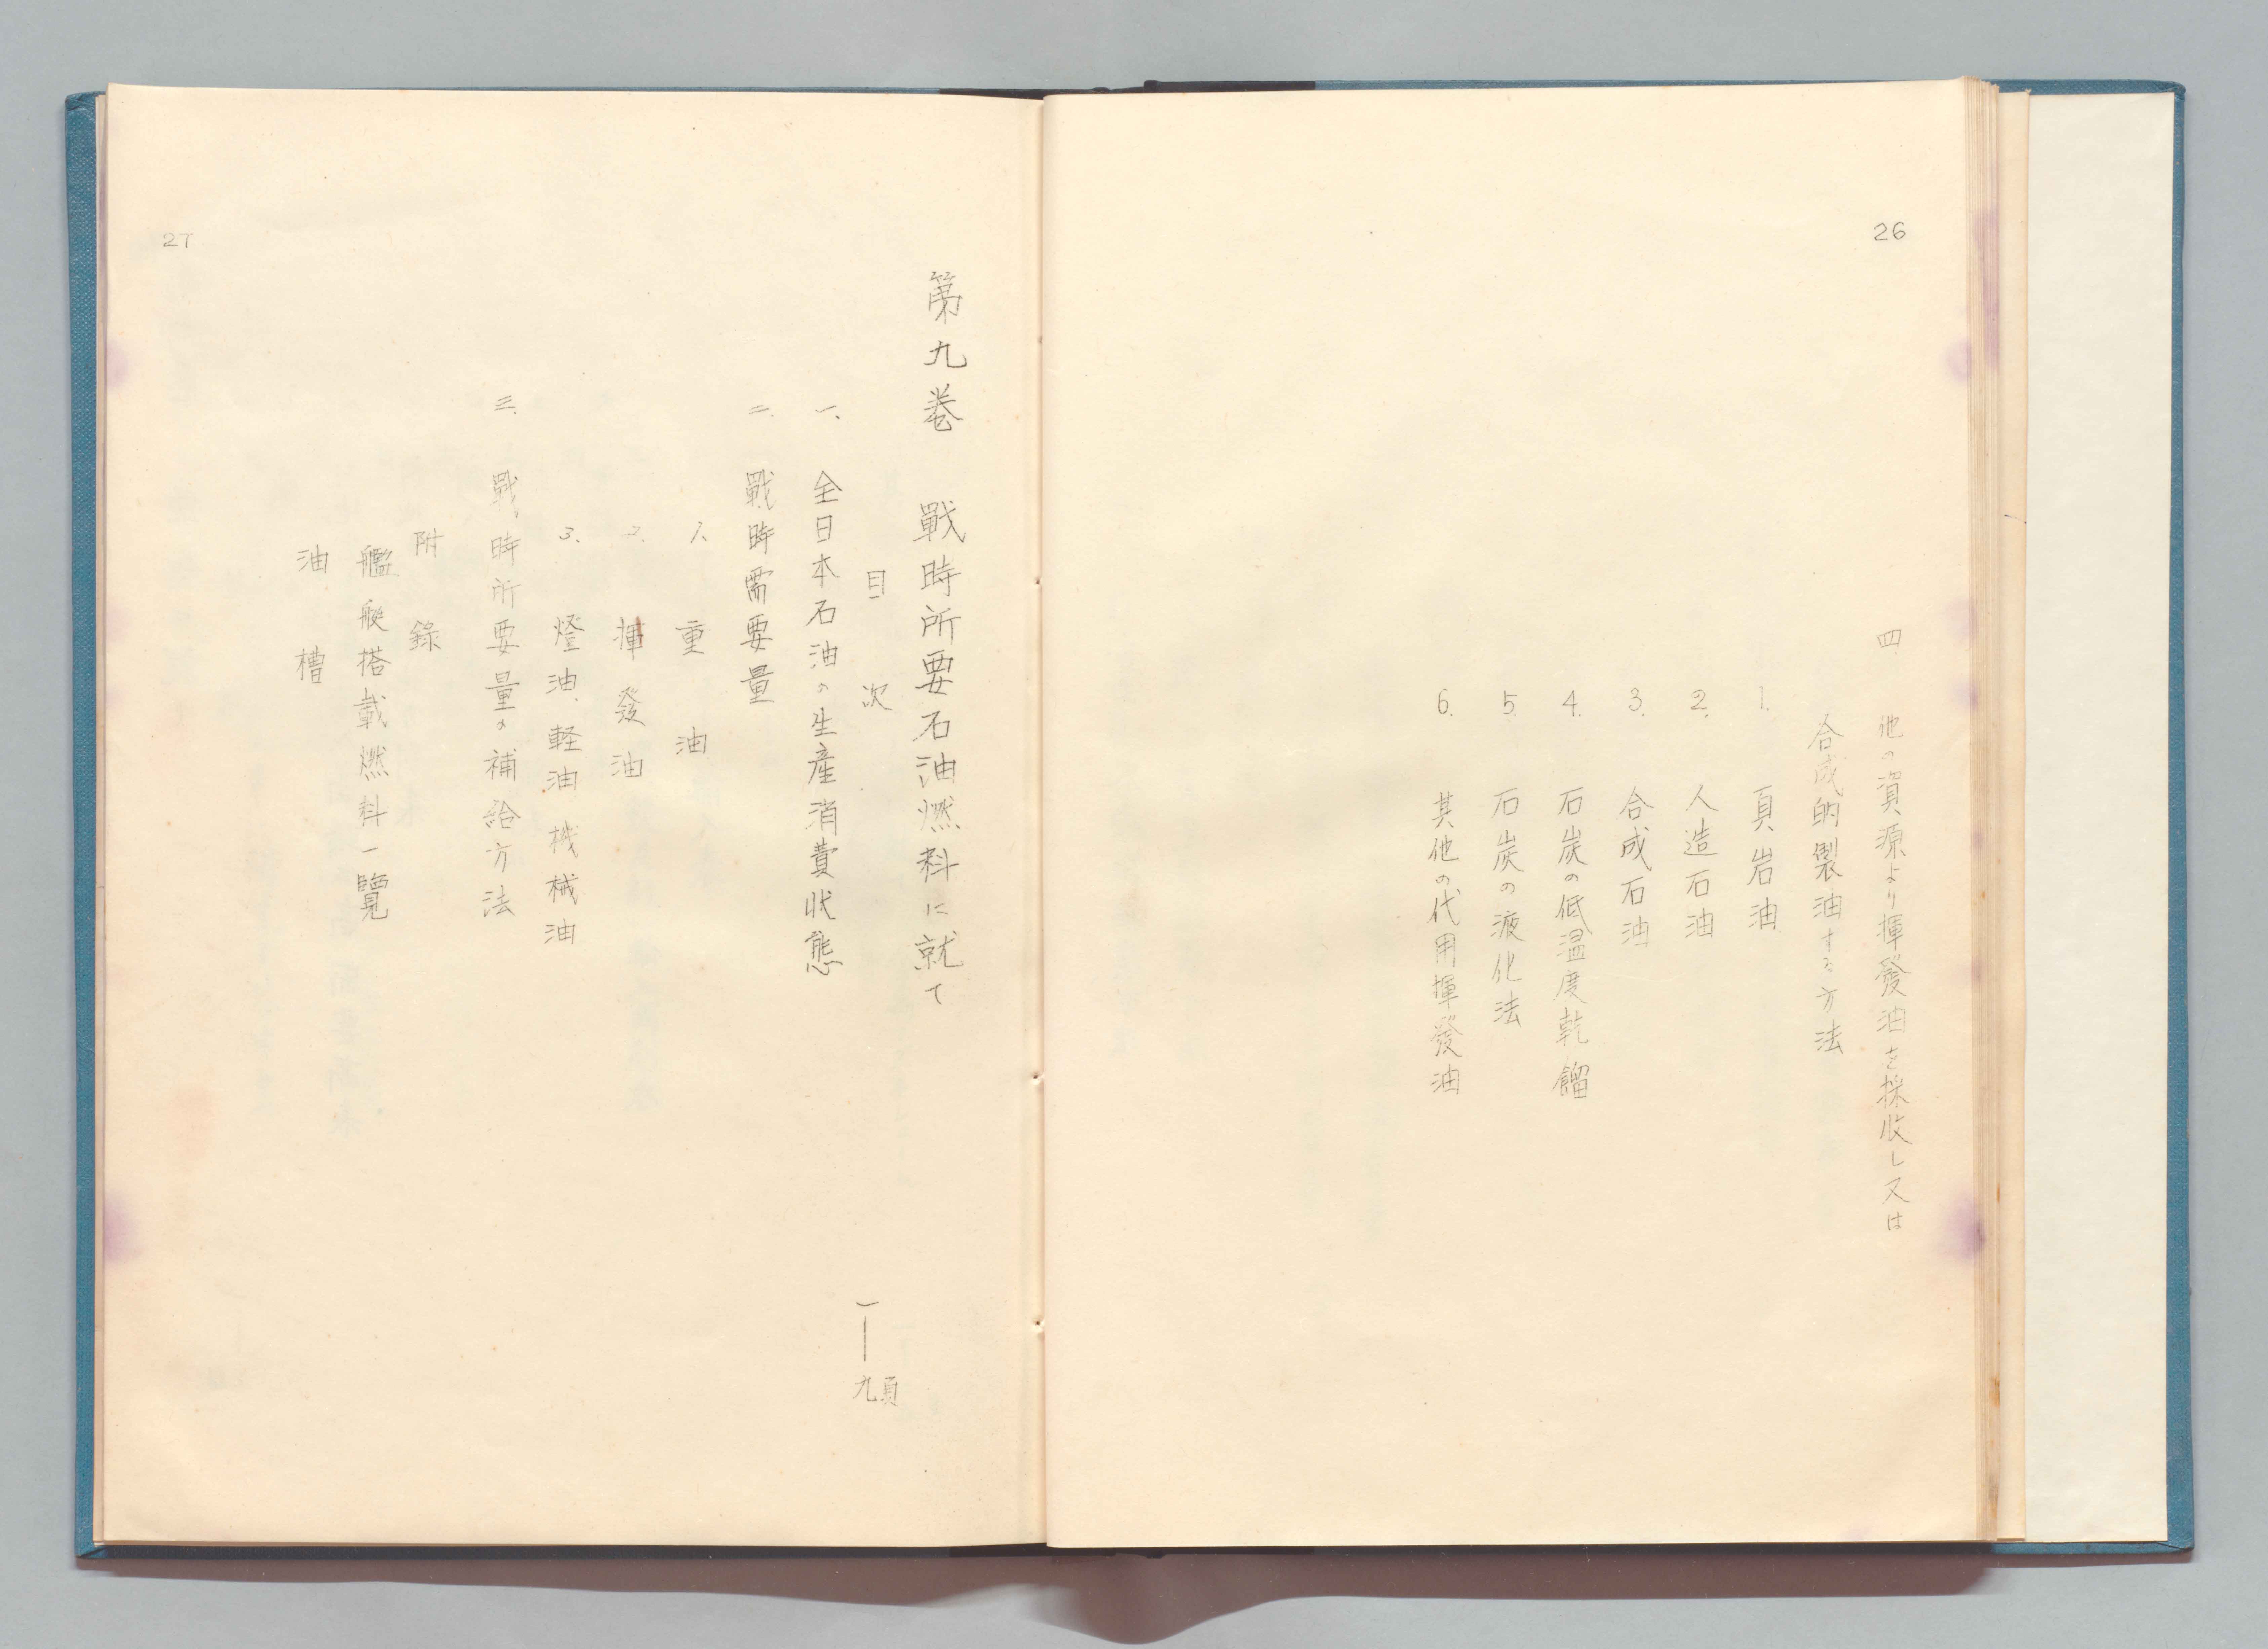 26
四、他の資源より揮發油を採收し又は
合成的製油する方法
1. 頁岩油
2. 人造石油
3. 合成石油
4. 石炭の低温度乾餾
5. 石炭の液化法
6. 其他の代用揮發油
27
第九巻 戰時所要石油燃料に就て
目次 一—九頁
一、全日本石油の生産消費状態
二、戰時需要量
1、重油
2、揮發油
3、燈油、軽油、機械油
三、戰時所要量の補給方法
附錄
艦艇搭載燃料一覽
油槽